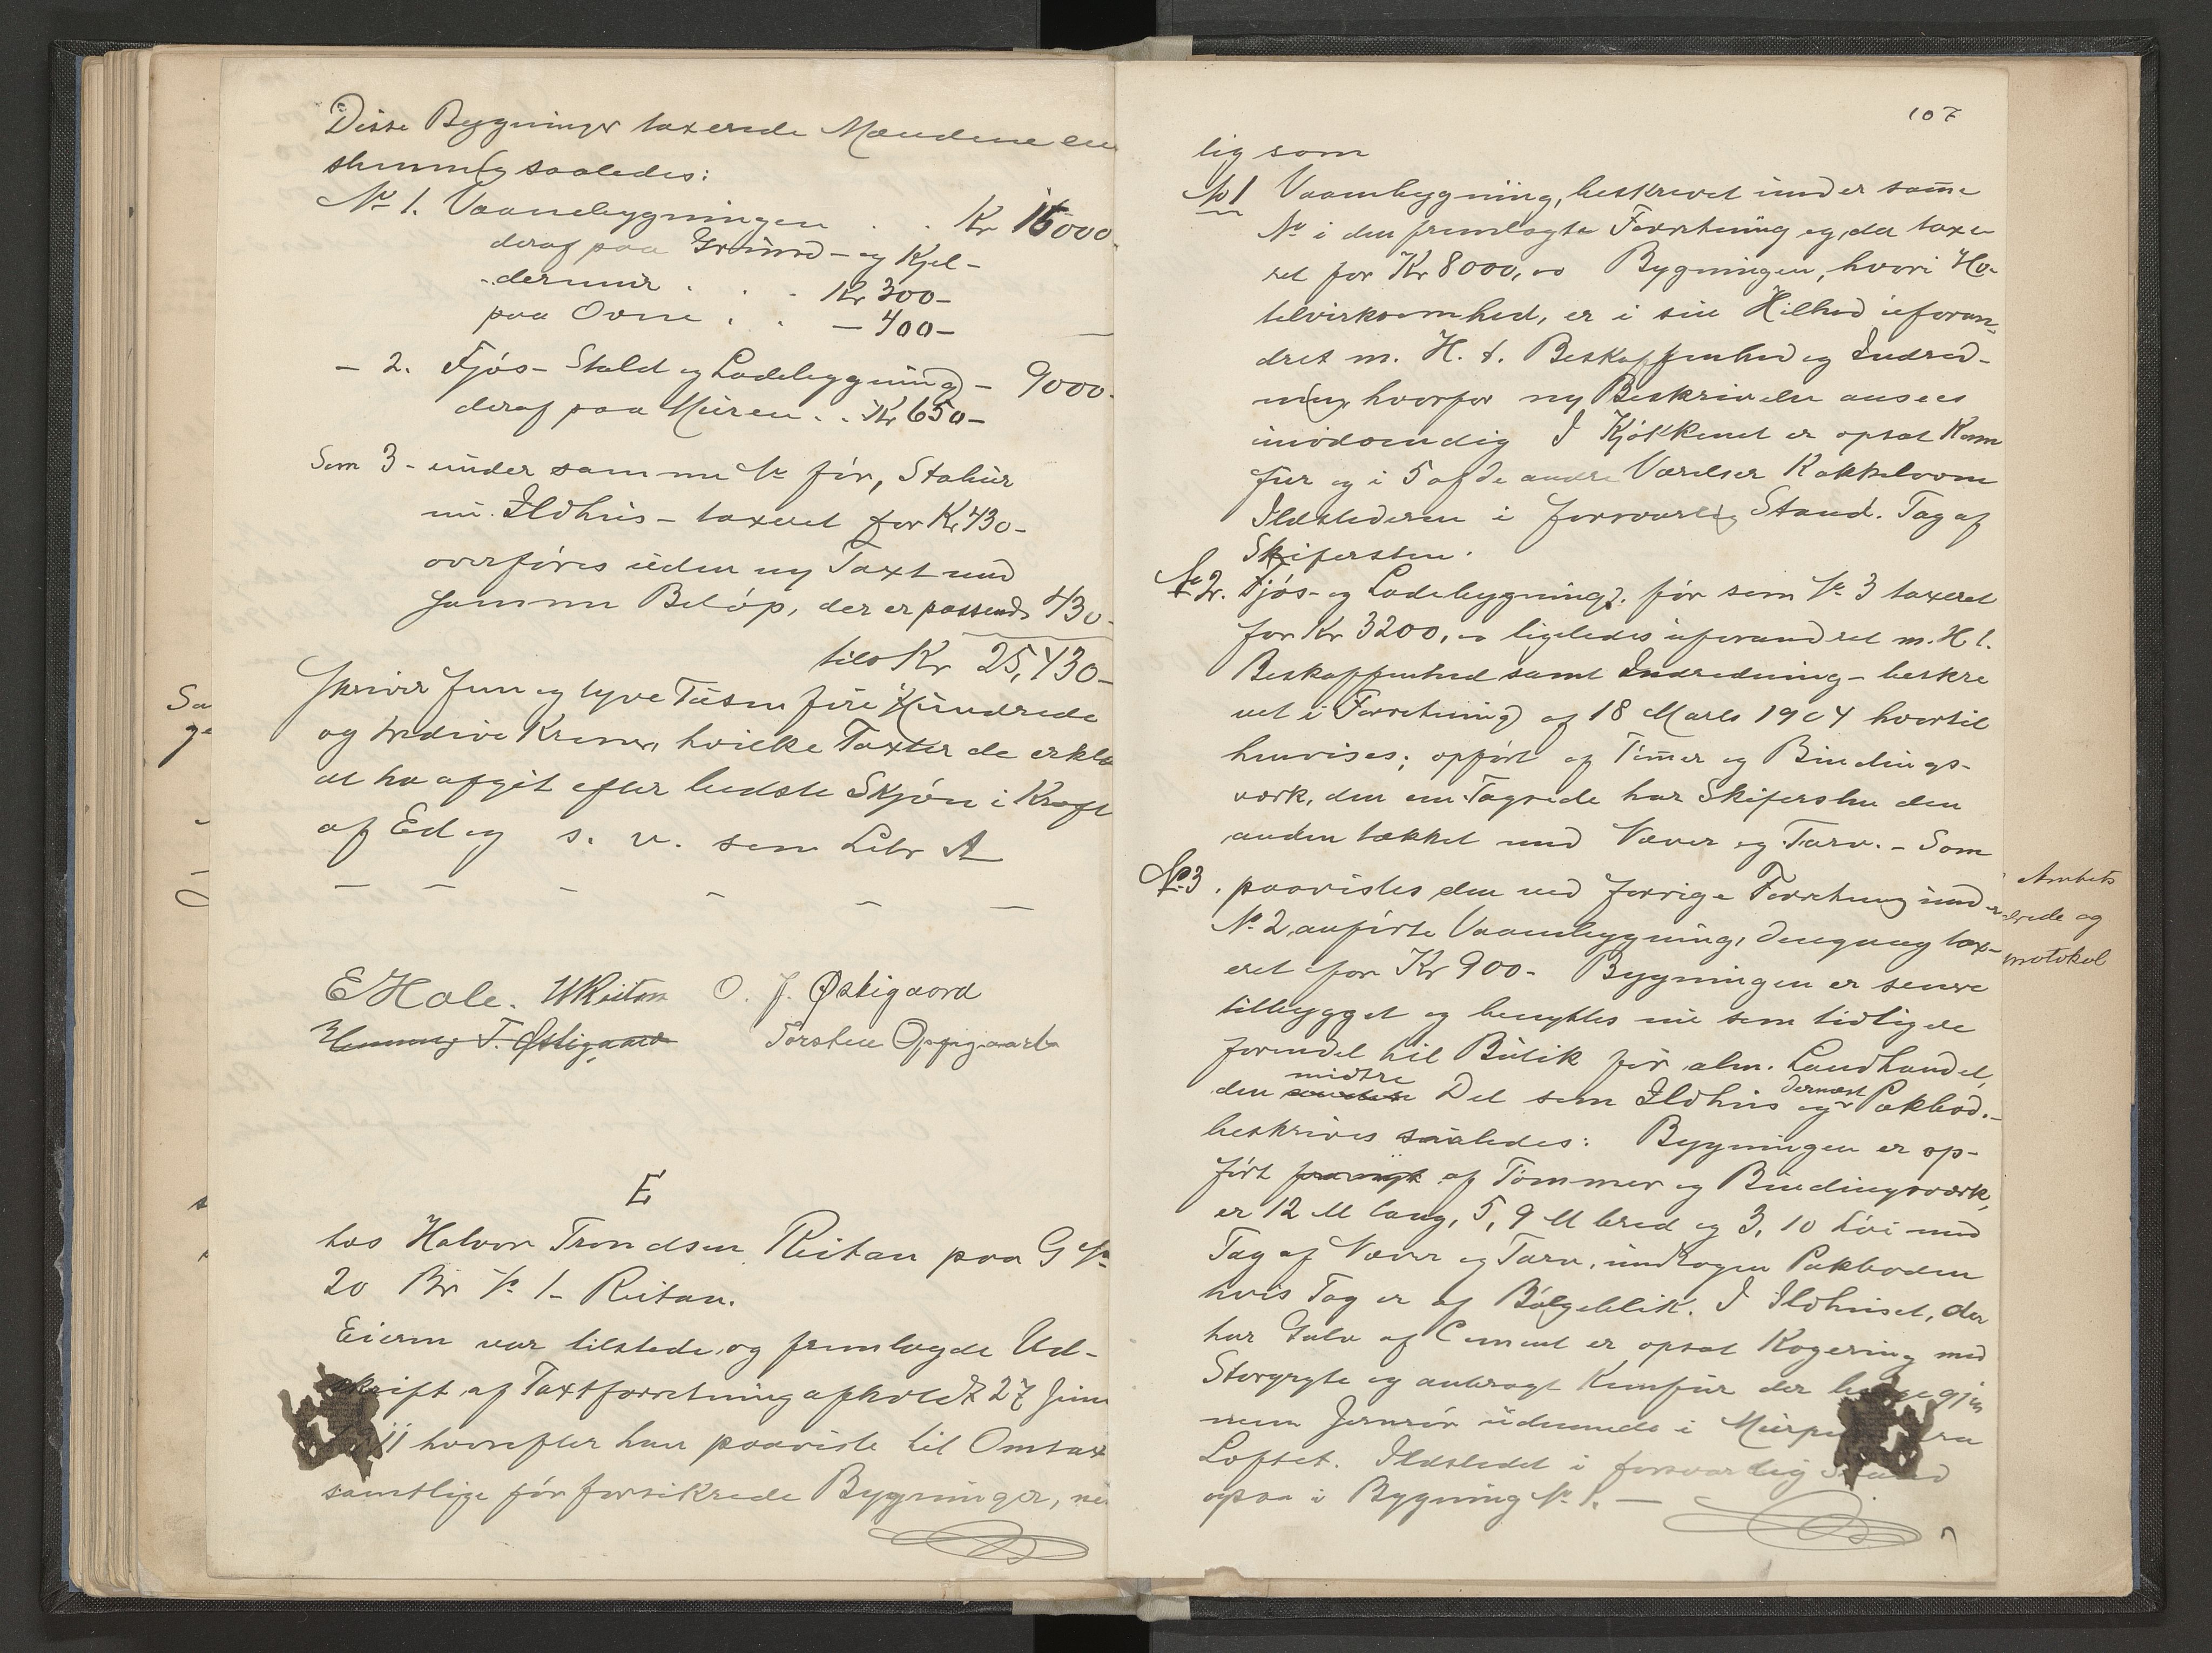 Disse Bygninger taxerede Mændene en
stemmig saaledes:
No 1. Vaanebygningen . . Kr 16000
deraf paa Grund- og Kjel-
dermur . . . Kr 300-
paa Ovne . . - 400-
- 2. Fjøs- Stald og Ladebygning - 9000.
deraf paa Muren . . Kr 650-
Som 3 - under samme No før, Stabur
nu Ildhus - taxeret for Kr 430-
overføres uden ny Taxt med
samme Beløp, der er passende 430-
tils Kr 25,430-
skriver fem og tyve Tusen fire Hundrede
og tredive Kroner, hvilke Taxter de erklæ
at ha afgit efter bedste Skjøn i Kraft
af Ed og s. v. som Litr A
E Hole. O. J. Østigaard
Henning T. Østigaard Torsten
E
hos Halvor Trondsen Reitan paa G No
20 Br No 1 - Reitan.
Eieren var tilstede og fremlagde Ud-
skrift af Taxtforretning afholdt 27 Juni
11 hvorefter han paaviste til Omtax
samtlige før forsikrede Bygninger, ne
107
lig som
No 1 Vaanebygning, beskrevet under samme
No i den fremlagte Forretning og der taxe
ret for Kr 8000,00 Bygningen, hvori Ho-
telvirksomhed, er i sin Helhed uforan-
dret m. H. t. Beskaffenhed og Indred-
ning hvorfor ny Beskrivelse ansees
unødvendig I Kjøkkenet er opsat Kom
fur og i 5 af de andre Værelser Kakkelovne
Ildstederne i forsvarlig Stand. Tag af
Skifersten.
No 2. Fjøs- og Ladebygning, før som No 3 taxeret
for Kr 3200,00 ligeledes uforandret m. H t.
Beskaffenhed samt Indredning - beskre
vet i Forretning af 18 Marts 1904 hvortil
henvises; opført af Tømmer og Bindings-
værk, den ene Tagside har Skifersten den
anden tækket med Næver og Tørv. - Som
No 3. paavistes den ved forrige Forretning under
No 2 anførte Vaanebygning, dengang tax-
eret for Kr 900- Bygningen er senere
tilbygget og benyttes nu som tidligere
forendel til Butik for alm. Landhandel,
midtre dernæst
den Del som Ildhus og Pakbod. -
beskrives saaledes: Bygningen er op-
ført af Tømmer og Bindingsværk,
er 12 M lang, 5,9 M bred og 3,10 høi med
Tag af Næver og Tørv, undtagen Pakboden
hvis Tag er af Bølgeblik. I Ildhuset, der
har Gulv af Cement er opsat Kogering med
Storgryte og anbragt Komfur der begge gjen
nem Jernrør udmunde i Murpibe fra
Loftet. Ildstedet i forsvarlig Stand
ogsaa i Bygning No 1. -
Ambets
brede og
protokol
Sa
ge